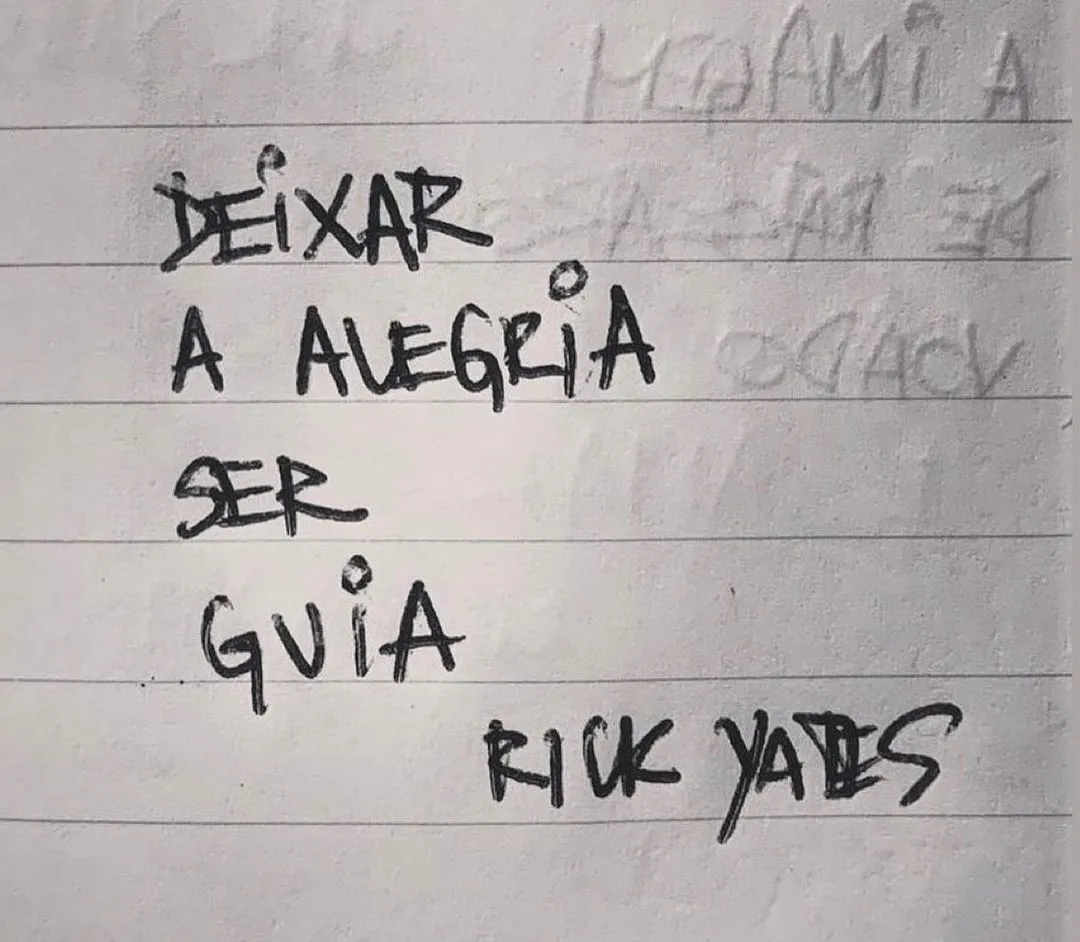 DEIXAR
A ALEGRIA
SER
GUIA
RICK YATES